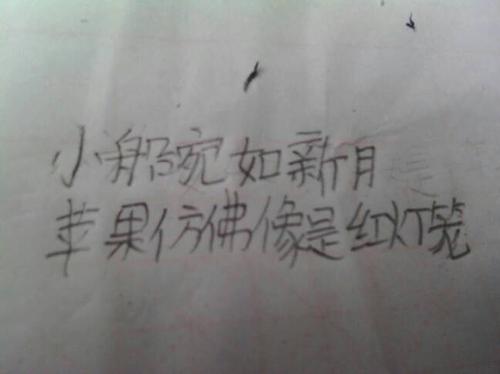 小船宛如新月
苹果仿佛像是红灯笼